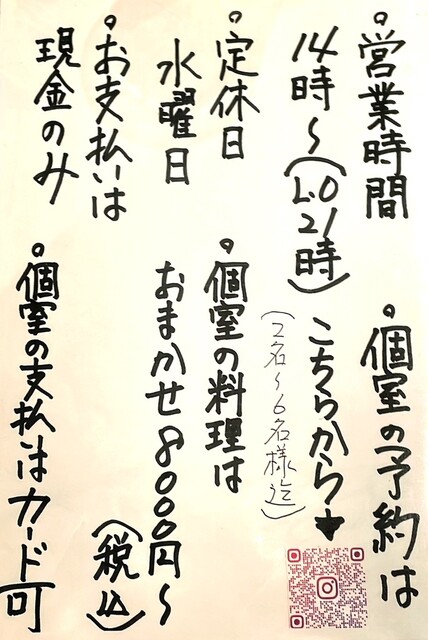 。営業時間
14時〜(L.O 21時)
。定休日
水曜日
。お支払いは
現金のみ
。個室の予約は
こちらから↓
(2名〜6名様迄)
。個室の料理は
おまかせ8000円〜
(税込)
。個室の支払いはカード可